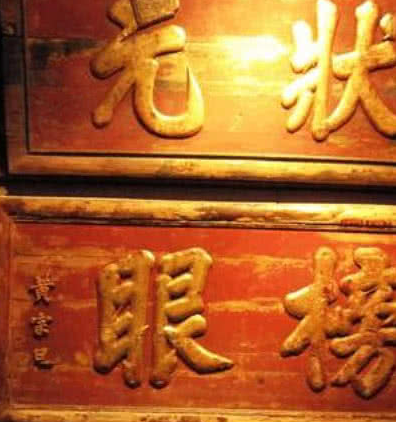 状元
榜眼
黄宗旦